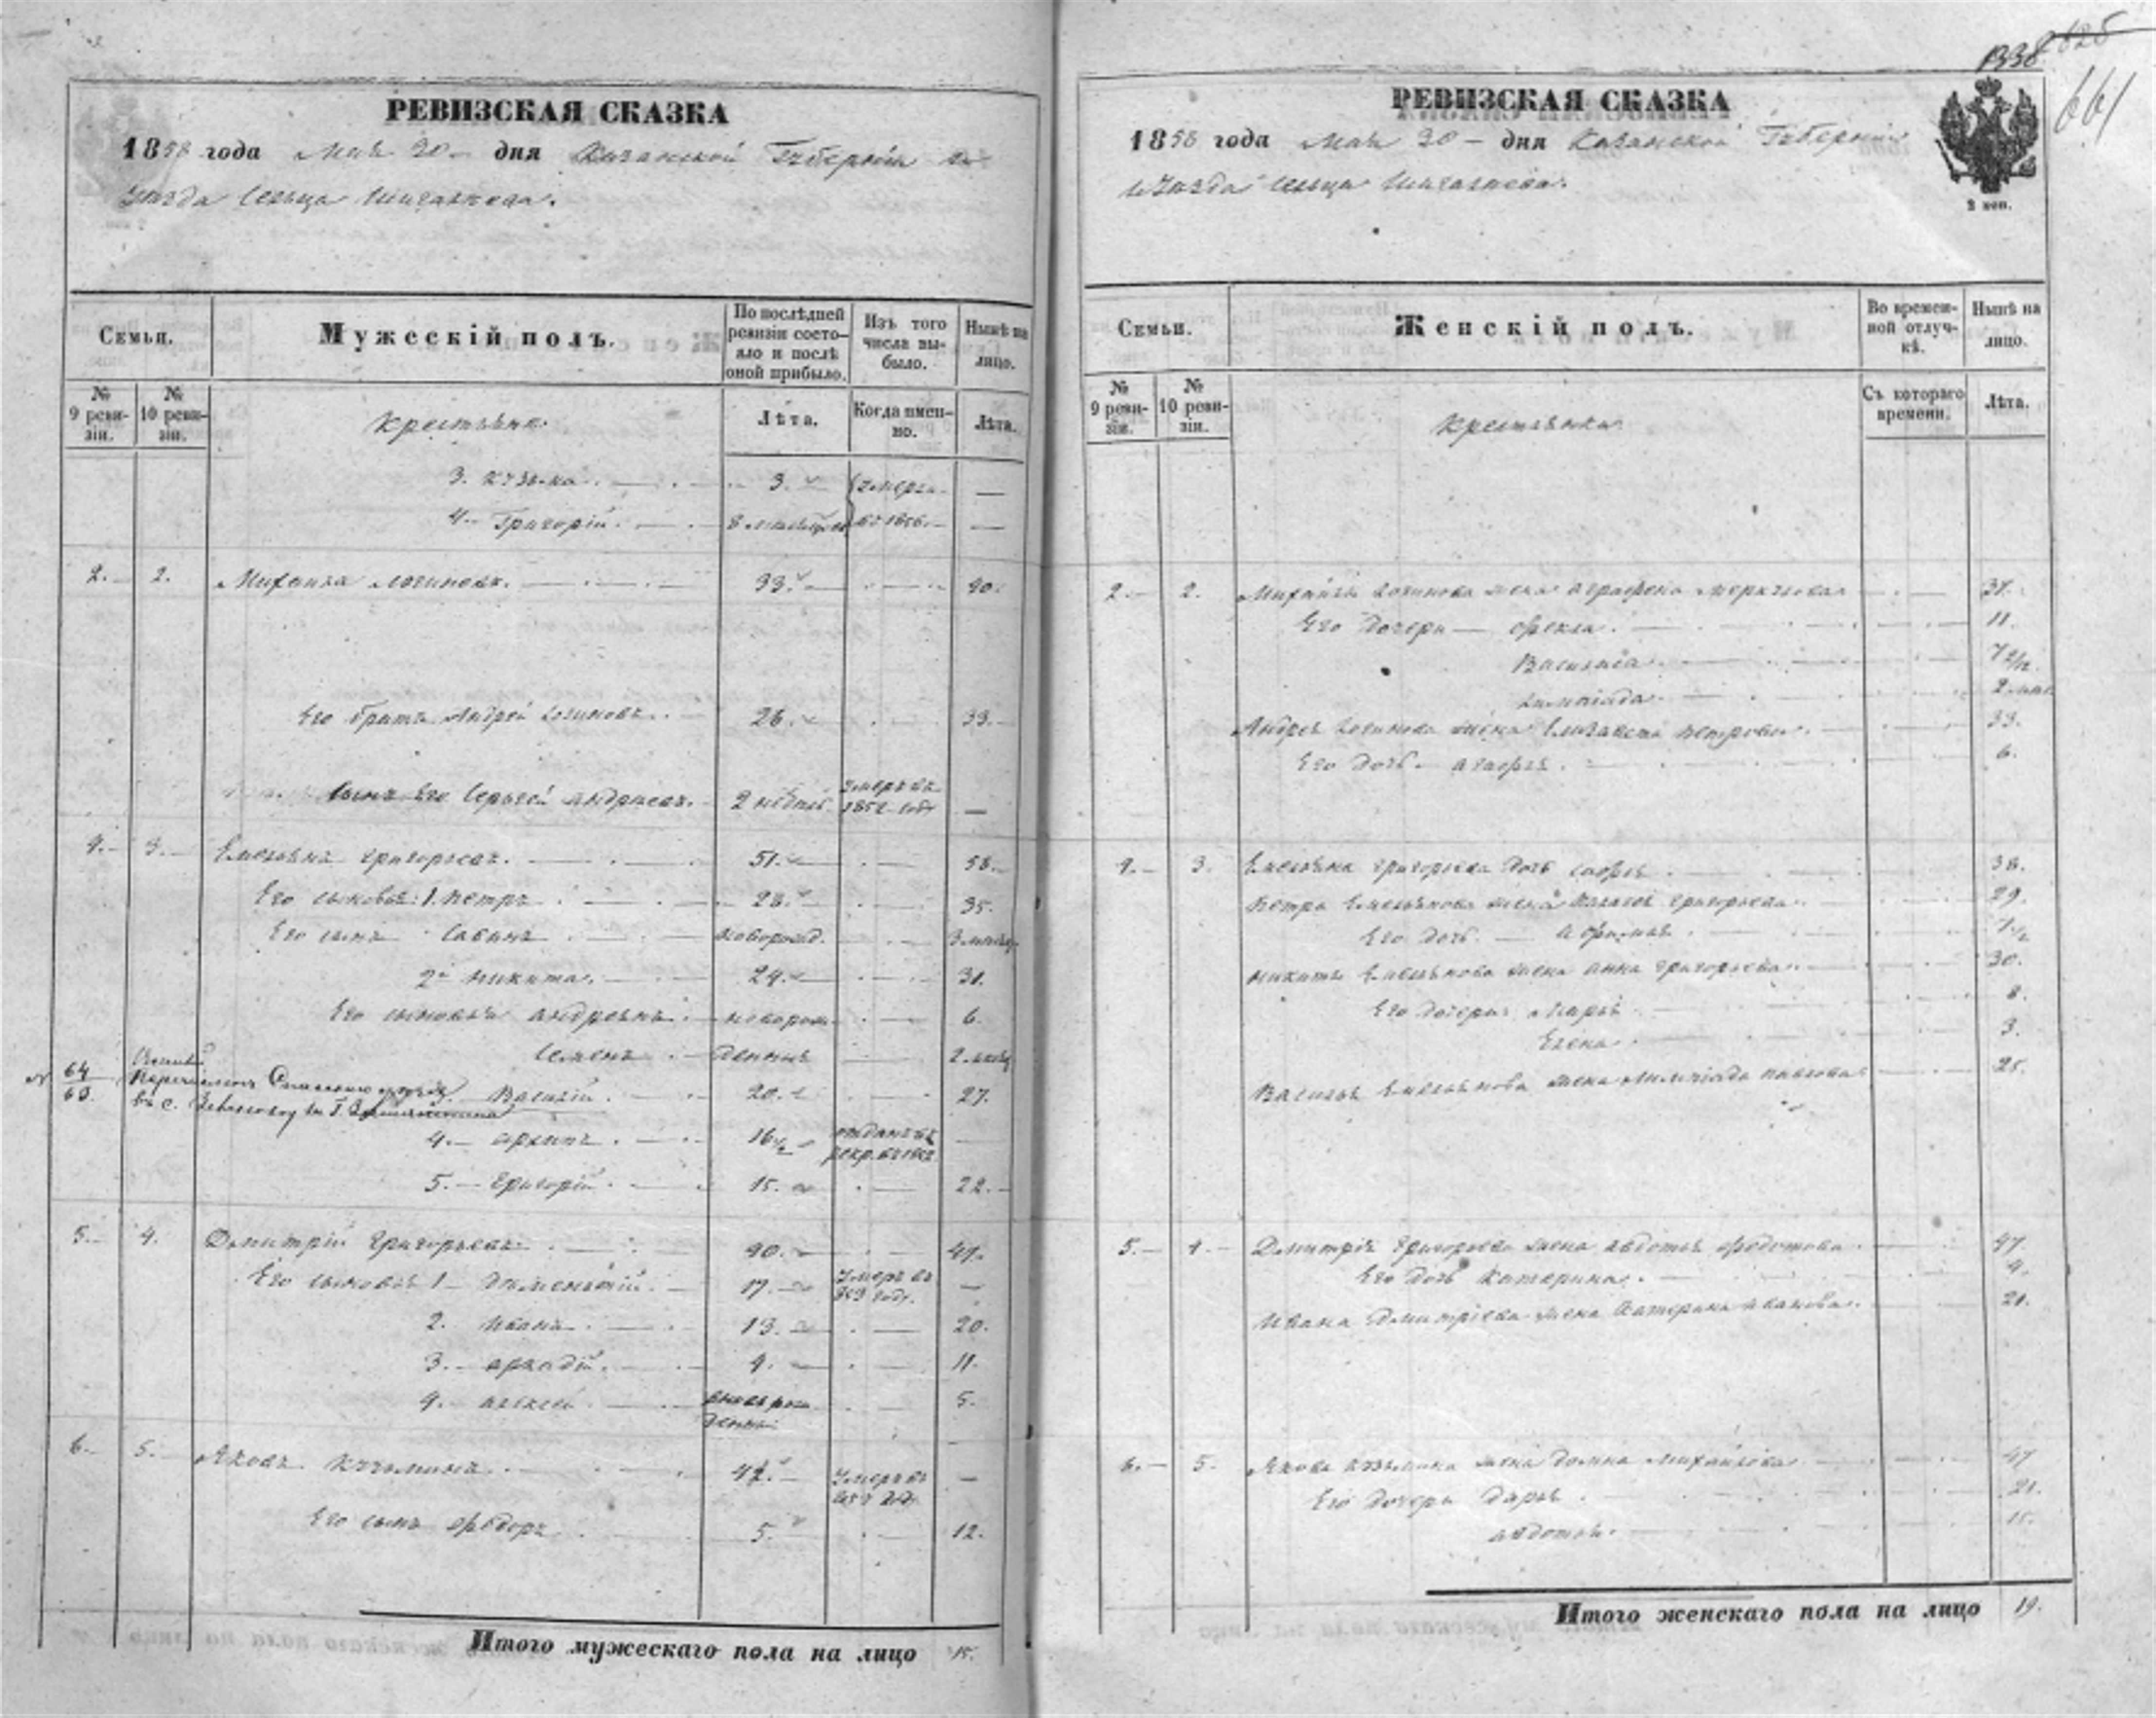 РЕВИЗСКАЯ СКАЗКА
1858 года Мая 20 дня Казанской Губернiи
Уѣзда Сельца
Семьи.
Мужескiй полъ.
По послѣдней ревизiи состояло и послѣ оной прибыло.
Изъ того числа выбыло.
Нынѣ на лицо.
№ 9 ревизiи.
№ 10 ревизiи.
Крестьяне.
Лѣта.
Когда именно.
Лѣта.
3. Кузьма. 3. умерли
4. Григорiй. 8 мѣсяцовъ въ 1856. —
2. 2. Михаила Логиновъ. 33. 40.
Его братъ Андрей Логиновъ. 26. 33.
Сынъ его Сергѣй Андреевъ. 2 недѣль умеръ въ 1852 году —
4. 3. Емельянъ Григорьевъ. 51. 58.
Его сыновья: 1. Петръ 28. 35.
Его сынъ Савинъ новорожд. 3 мѣсяц.
2й Никита. 24. 31.
Его сыновья Андреянъ новорож- 6.
Семенъ денные 2 мѣсяц
64
63
Василiй. 20. 27.
4. Архипъ. 16½ отданъ въ рекр. въ
5. Григорiй. 15. 22.
5. 4. Дмитрiй Григорьевъ. 40. 47.
Его сыновья 1 Дементiй. 17. умеръ въ 853 году. —
2. Иванъ. 13. 20.
3. Аркадiй. 4. 11.
4. Алексей вновь рожденный 5.
6. 5. Яковъ Кузьминъ. 42. умеръ въ —
Его сынъ Федоръ 5. 12.
Итого мужескаго пола на лицо 15.
1338 625
661
РЕВИЗСКАЯ СКАЗКА
1858 года Мая 20 дня Казанской Губернiи
уѣзда сельца
2 коп.
Семьи.
Женскiй полъ.
Во временной отлучкѣ.
Нынѣ на лицо.
№ 9 ревизiи.
№ 10 ревизiи.
Крестьянки
Съ котораго времени.
Лѣта.
2. 2. Михайлы Логинова жена Аграфена Меркулова 37.
Его дочери Фекла. 11.
Василиса. 7
Лимпiада. 2 мѣс.
Андрея Логинова жена Елизавета Петрова. 33.
Его дочь Агафья. 6.
4. 3. Емельяна Григорьева дочь Софья 38.
Петра Емельянова жена Палагея Григорьева. 29.
Его дочь Афимья. 1½
Никиты Емельянова жена Анна Григорьева. 30.
Его дочери Марья 8.
Елена. 3.
Василья Емельянова жена Алимпiада Павлова 25.
5. 4. Дмитрiя Григорьева жена Авдотья Федотова 47.
Его дочь Катерина. 9.
Ивана Дмитрiева жена Катерина Иванова. 21.
6. 5. Якова Кузьмина жена Домна Михайлова 47
Его дочери Дарья. 21.
Авдотья. 15.
Итого женскаго пола на лицо 19.